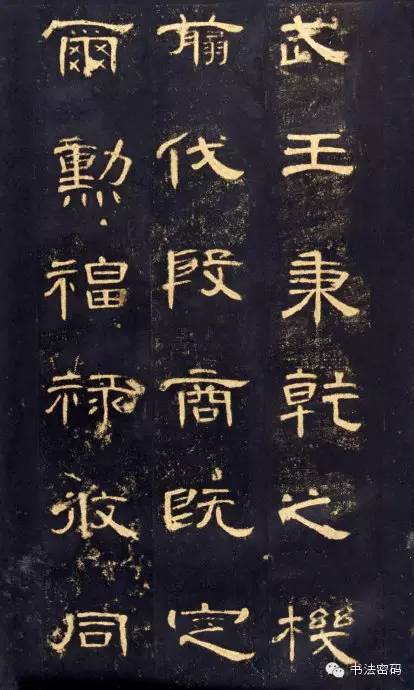 武王秉乾之機
翦伐殷商既定
爾勳福祿攸同
书法密码